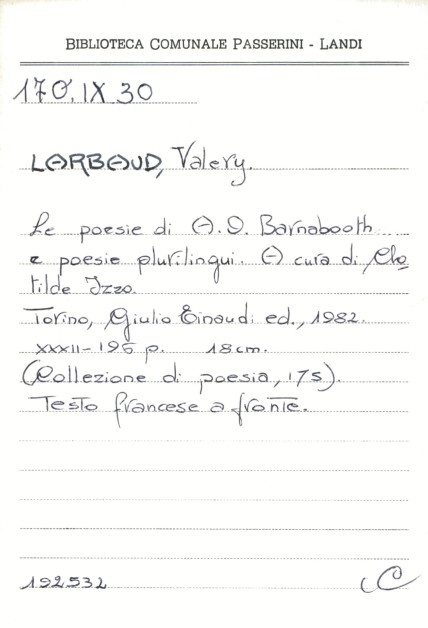 BIBLIOTECA COMUNALE PASSERINI - LANDI
170.IX 30
LARBAUD, Valery.
Le poesie di A.O. Barnabooth
e poesie plurilingui. A cura di Clo
tilde Izzo.
Torino, Giulio Einaudi ed., 1982.
XXXII-195 p. 18 cm.
(Collezione di poesia, 175).
Testo francese a fronte.
192532